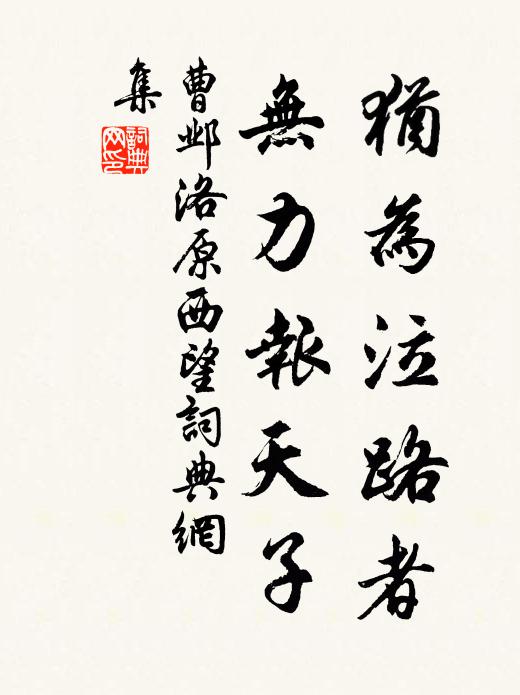 猶為泣路者
無力報天子
曹邺洛原西望詞典網
集
詞典
网印